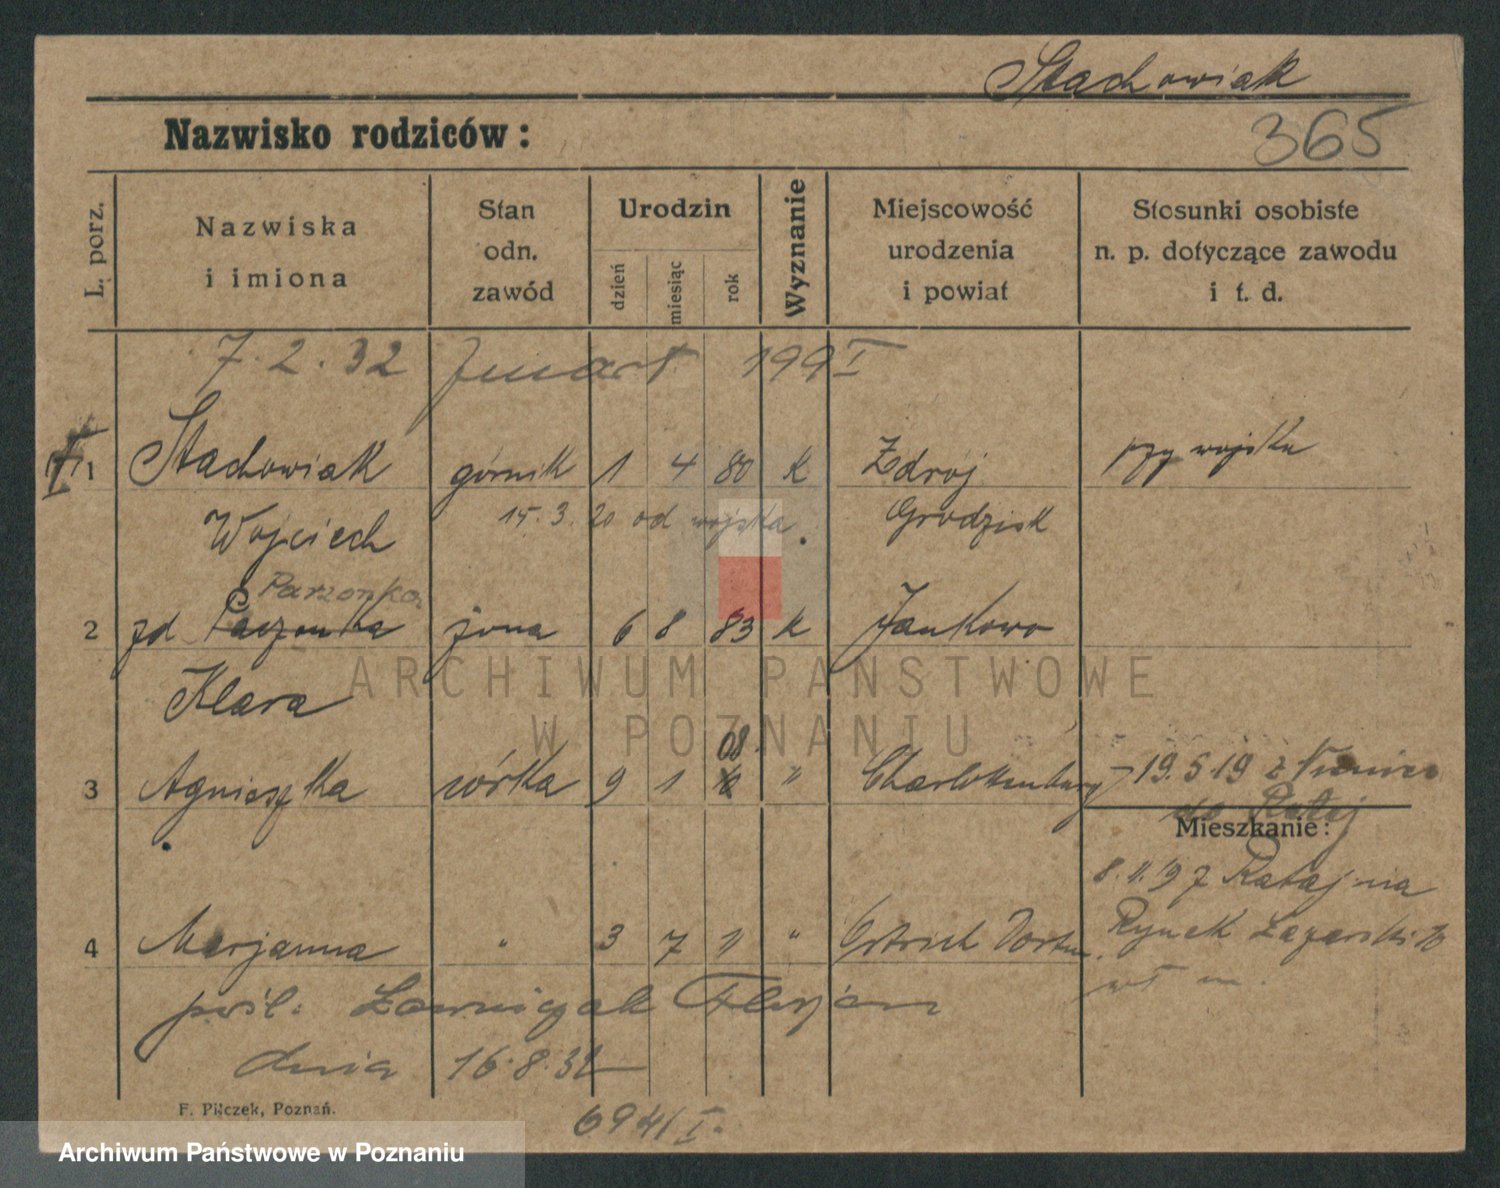 Stachowiak
Nazwisko rodziców:
365
L. porz.
Nazwiska i imiona
Stan odn. zawód
Urodzin
dzień
miesiąc
rok
Wyznanie
Miejscowość urodzenia i powiat
Stosunki osobiste n. p. dotyczące zawodu i t. d.
7.2.32 zmarł 199 I
1 Stachowiak górnik 1 4 80 k Zdrój przy wojsku
Wojciech 15.3.20 od wojska. Grodzisk
Parzonka
2 zd żona 6 8 83 k Jankowo
Klara
3 Agnieszka córka 9 1 08 " Charlottenburg 19.5.19 z
do Rataj
Mieszkanie:
8. 11. 19 z Rataj na
4 Marjanna " 3 7 11 "
Rynek Łazarski
pośl. Florjan
dnia 16.8.32
F. Pilczek, Poznań.
6941 I.
ARCHIWUM PAŃSTWOWE
W POZNANIU
Archiwum Państwowe w Poznaniu